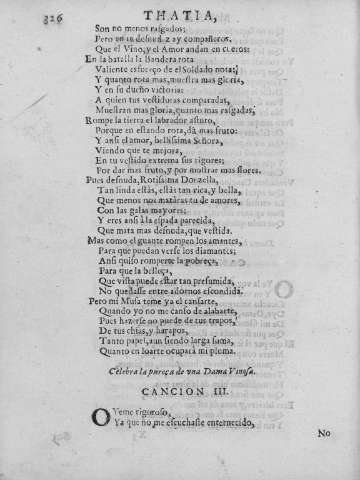 326 THATIA,
Son no menos rasgados;
Pero en tu desnudez ay compañeros,
Que el Vino, y el Amor andan en cueros:
En la batalla la Bandera rota
Valiente esfuerço de el Soldado nota;
Y quanto rota mas, muestra mas gloria,
Y en su dueño victoria:
A quien tus vestiduras comparadas,
Muestran mas gloria, quanto mas rasgadas;
Rompe la tierra el labrador astuto,
Porque en estando rota, dà mas fruto:
Y ansi el amor, bellissima Señora,
Viendo que te mejora,
En tu vestido extrema sus rigores;
Por dar mas fruto, y por mostrar mas flores.
Pues desnuda, Rotissima Donzella,
Tan linda estàs, estàs tan rica, y bella,
Que menos nos matàras tu de amores,
Con las galas mayores;
Y eres ansi à la espada parecida,
Que mata mas desnuda, que vestida.
Mas como el guante rompen los amantes,
Para que puedan verse los diamantes;
Ansi quiso romperte la pobreça,
Para que la belleça,
Que vista puede estar tan presumida,
No quedasse entre adornos escondida.
Pero mi Musa teme ya el cansarte,
Quando yo no me canso de alabarte,
Pues hazerse no puede de tus trapos,
De tus chias, y harapos,
Tanto papel, aun siendo larga suma,
Quanto en loarte ocuparà mi pluma.
Celebra la pureça de vna Dama Vinosa.
CANCION III.
OYeme riguroso,
Ya que no me escuchaste enternecido,
No